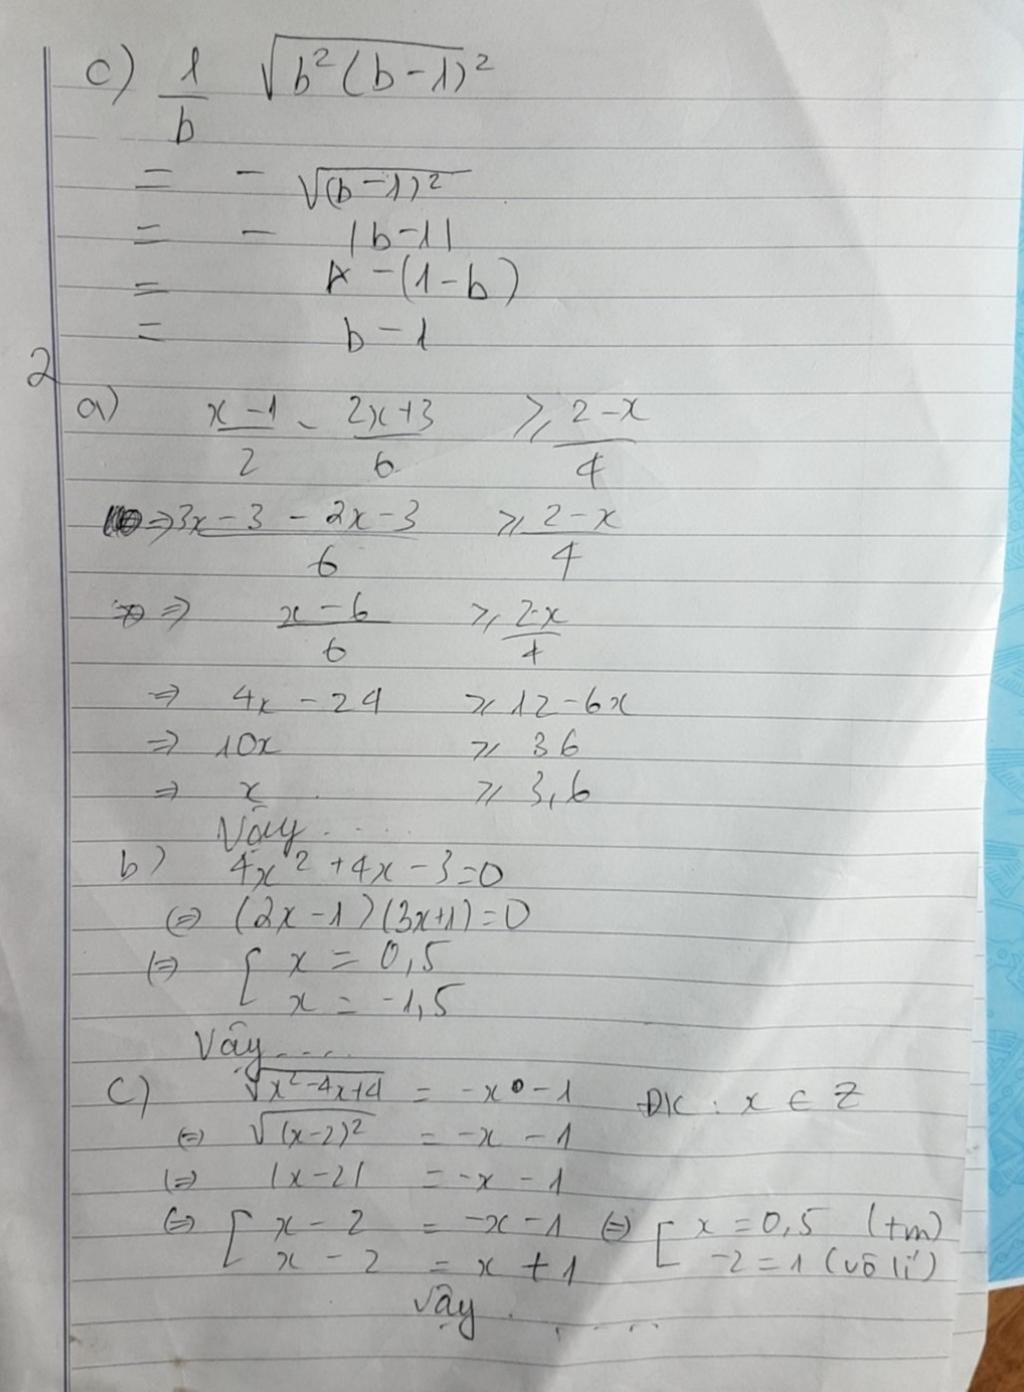 c) 1/b √(b²(b-1)²)
= - √((b-1)²)
= - |b-1|
= -(1-b)
= b-1
2
a) (x-1)/2 - (2x+3)/6 ⩾ (2-x)/4
⇒ (3x-3-2x-3)/6 ⩾ (2-x)/4
⇒ (x-6)/6 ⩾ (2-x)/4
⇒ 4x-24 ⩾ 12-6x
⇒ 10x ⩾ 36
⇒ x ⩾ 3,6
Vậy.....
b) 4x²+4x-3=0
⇔ (2x-1)(3x+1)=0
⇔ [ x = 0,5
x = -1,5
Vậy....
c) √(x²-4x+4) = -x-1 ĐK: x ∈ Z
⇔ √((x-2)²) = -x-1
⇔ |x-2| = -x-1
⇔ [ x-2 = -x-1 ⇔ [ x=0,5 (tm)
x-2 = x+1 -2=1 (vô lí)
Vậy .....